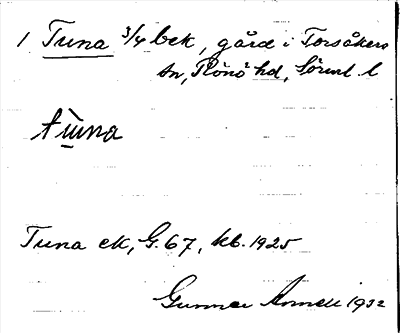 1 Tuna 3/4 bek, gård i Torsåkers
sn, Rönö hd, Sörml. l
tùna
Tuna ek, G. 67, kb. 1925
Gunnar 1932